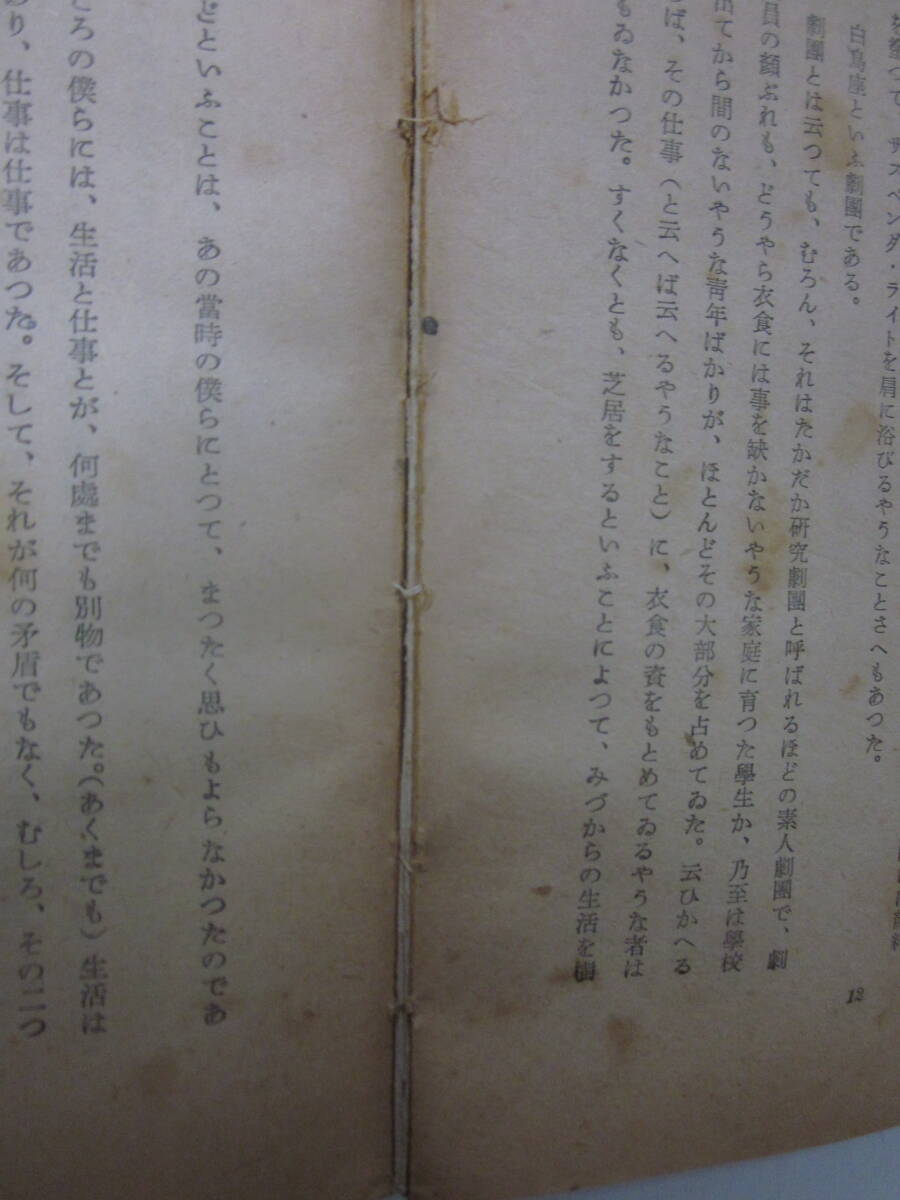 サスペンダ・ライトを肩に浴びるやうなことさへもあつた。
白鳥座といふ劇團である。
劇團とは云つても、むろん、それはたかだか研究劇團と呼ばれるほどの素人劇團で、劇
員の顏ぶれも、どうやら衣食には事を缺かないやうな家庭に育つた學生か、乃至は學校
出てから間のないやうな靑年ばかりが、ほとんどその大部分を占めてゐた。云ひかへる
ば、その仕事（と云へば云へるやうなこと）に、衣食の資をもとめてゐるやうな者は
もゐなかつた。すくなくとも、芝居をするといふことによつて、みづからの生活を
12
どといふことは、あの當時の僕らにとつて、まつたく思ひもよらなかつたのであ
ころの僕らには、生活と仕事とが、何處までも別物であつた。（あくまでも）生活は
あり、仕事は仕事であつた。そして、それが何の矛盾でもなく、むしろ、その二つ